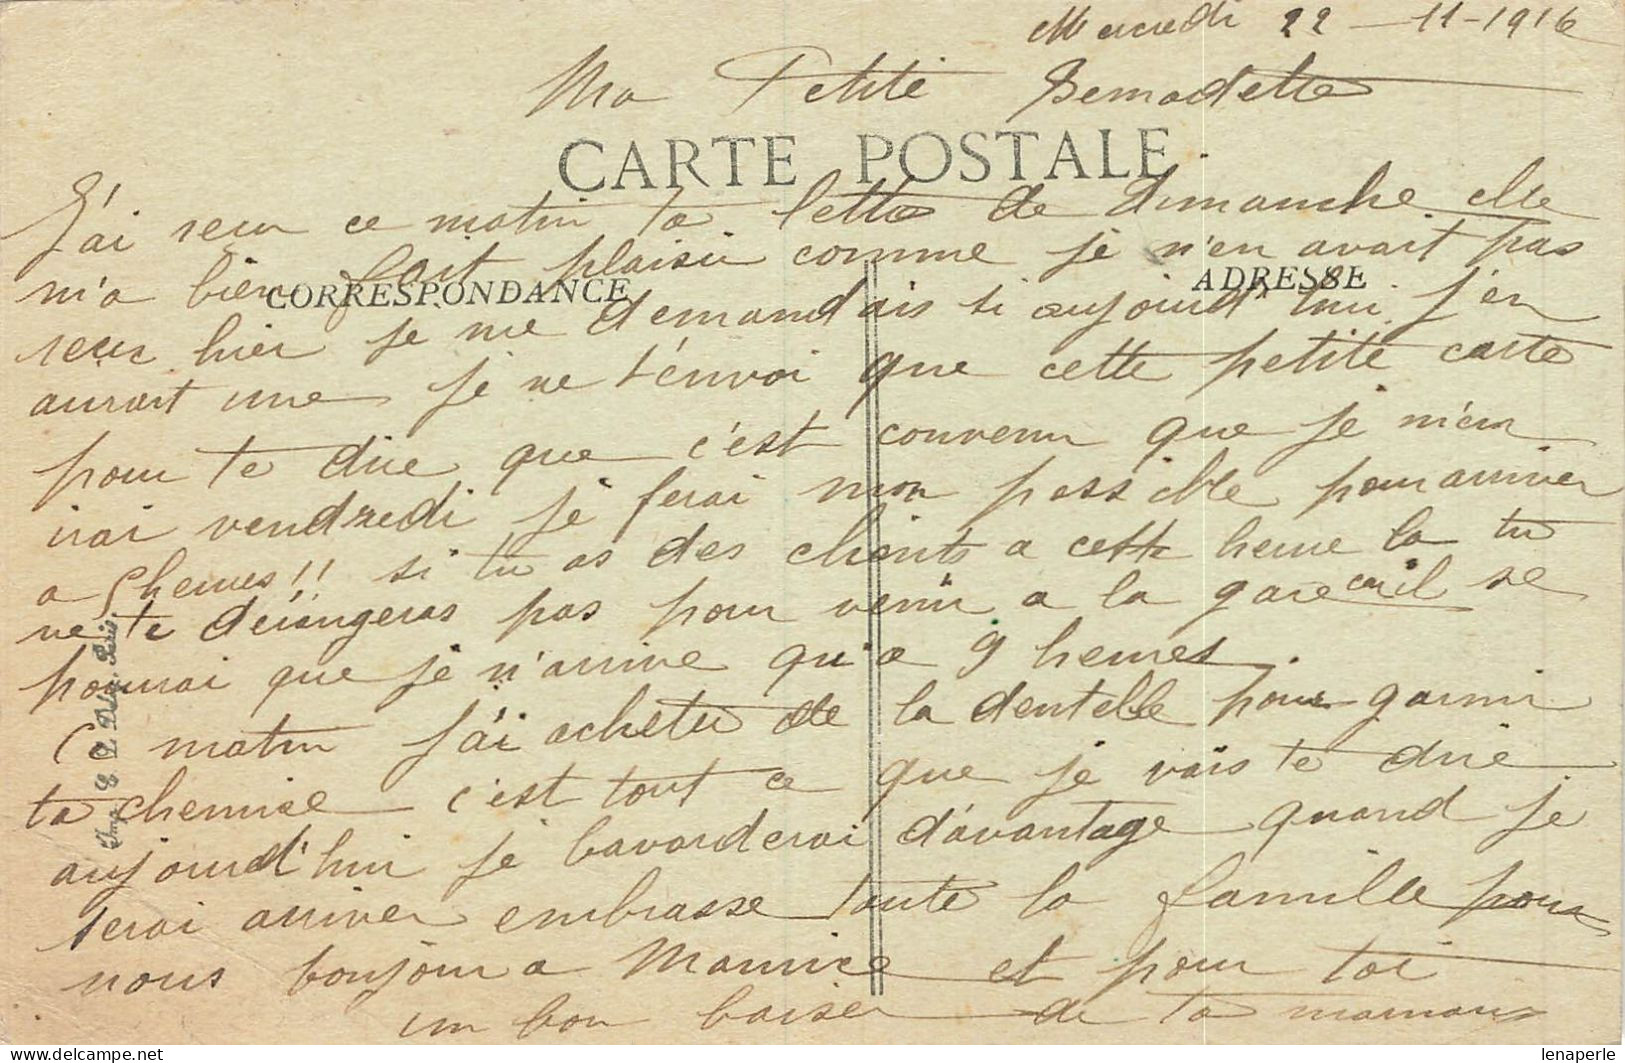 Mercredi 22-11-1916
Ma Petite Bernadette
CARTE POSTALE
J'ai recu ce matin ta lettre de dimanche elle
m'a bien fait plaisir comme je n'en avait pas
CORRESPONDANCE
ADRESSE
recus hier je me demandais si aujourd'hui j'en
aurait une je ne t'envoi que cette petite carte
pour te dire que c'est convenu que je m'en
irai vendredi je ferai mon possible pour arriver
a 5 heures!! si tu as des clients a cette heure la tu
ne te dérangeras pas pour venir a la gare car il se
pourrai que je n'arrive qu'a 9 heures.
Ce matin j'ai acheter de la dentelle pour garnir
ta chemise c'est tout ce que je vais te dire
aujourd'hui je bavarderai d'avantage quand je
serai arriver embrasse toute la famille pour
nous bonjour a Maurice et pour toi
un bon baiser de ta maman
Imp. E. Delé. Paris
lenaperle